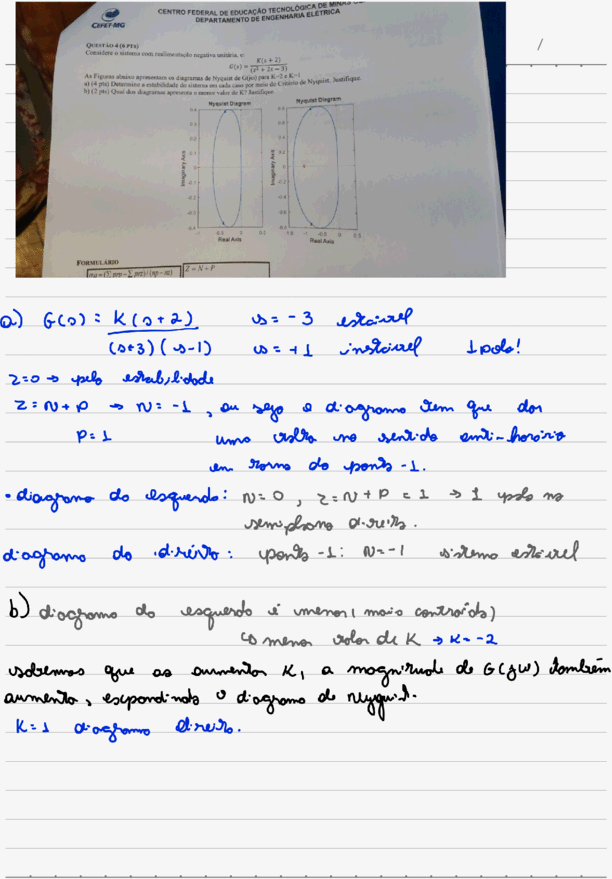 CENTRO FEDERAL DE EDUCAÇÃO TECNOLÓGICA DE MINAS
DEPARTAMENTO DE ENGENHARIA ELÉTRICA
CEFET-MG
QUESTÃO 4 (6 PTS)
Considere o sistema com realimentação negativa unitária, e:
G(s) = K(s + 2) / (s² + 2s − 3)
As Figuras abaixo apresentam os diagramas de Nyquist de G(jω) para K=2 e K=1
a) (4 pts) Determine a estabilidade do sistema em cada caso por meio do Critério de Nyquist. Justifique.
b) (2 pts) Qual dos diagramas apresenta o menor valor de K? Justifique.
Nyquist Diagram
Nyquist Diagram
Imaginary Axis
Imaginary Axis
Real Axis
Real Axis
FORMULÁRIO
Z = N + P
/
a) G(s) = K(s+2) s = -3 estável
(s+3)(s-1) s = +1 instável 1 polo!
Z=0 → pela estabilidade
Z = N + P → N = -1, ou seja o diagrama tem que dar
P = 1 uma volta no sentido anti-horário
em torno do ponto -1.
• diagrama da esquerda: N=0, Z=N+P=1 → 1 polo no
semiplano direito.
diagrama da direita: ponto -1: N=-1 sistema estável
b) diagrama da esquerda é menor (mais contraída)
↳ menor valor de K → K=-2
sabemos que ao aumentar K, a magnitude de G(jω) também
aumenta, expandindo o diagrama de nyquist.
K=1 diagrama direito.